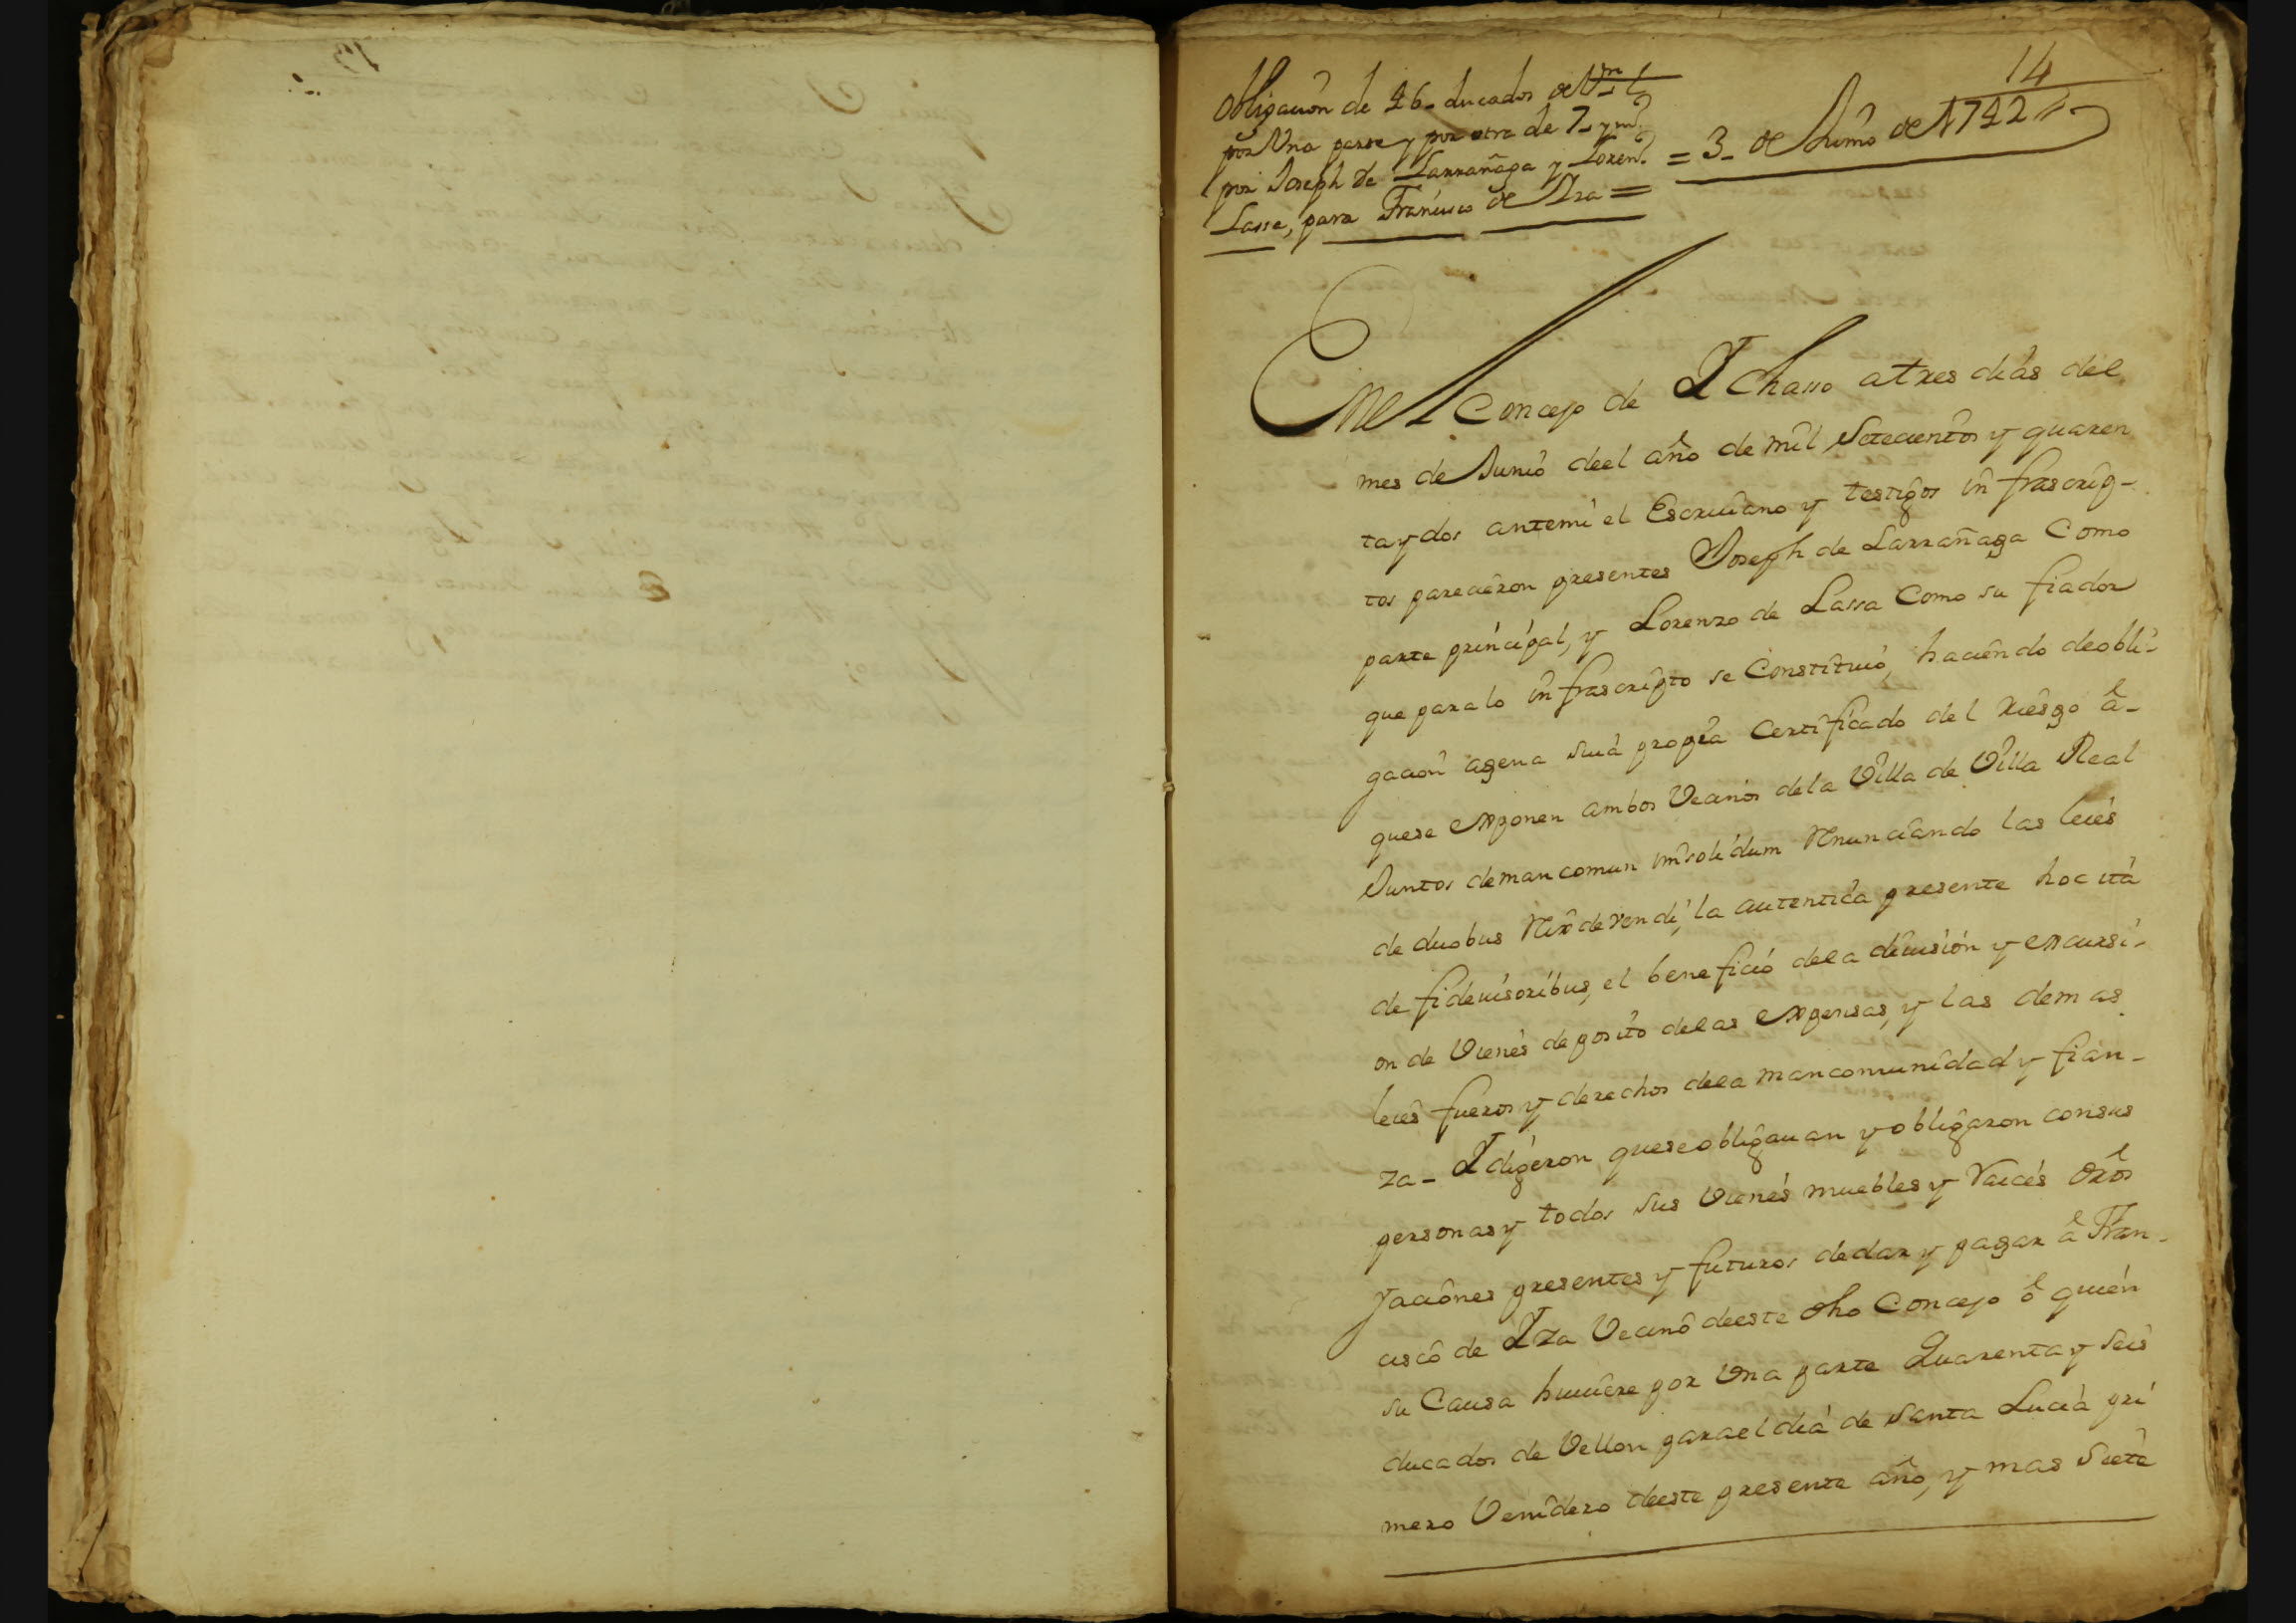 14
Obligacion de 46 ducados de Vn
por Una parte y por otra de 7 y mº
por Joseph de Larrañaga y Lorenº
Lassa, para Francisco de Iza =
= 3 de Junio de 1742
En el Concejo de Ichasso a tres dias del
mes de Junio deel año de mil Setecientos y quaren
ta y dos antemi el Escriuano y testigos infrascrip-
tos parecieron presentes Joseph de Larrañaga Como
parte principal, y Lorenzo de Lassa Como su fiador
que para lo infrascripto se Constituió, haciendo deobli-
gacion agena suia propia Certificado del Riesgo â-
quese exponen ambos Vecinos dela Villa de Villa Real
Juntos demancomun imsolidum Renunciando las leies
de duobus Rex devendi, la autentica presente hoc ita
de fideiusoribus, el beneficio deea diuision y excursi-
on de Vienes deposito deeas expensas, y las demas
leies fueros y derechos deea mancomunidad y fian-
za - I digeron queseobligauan y obligaron consus
personas y todos sus Vienes muebles y raices drôs
y acciônes presentes y futuros dedar y pagar â Fran-
ciscô de Iza Vecinô deeste dho Concejo ô quien
su Causa huuiere por Una parte Quarenta y Seis
ducados de Vellon parael dia de Santa Lucia pri
mero Venidero deeste presente año, y mas Siete